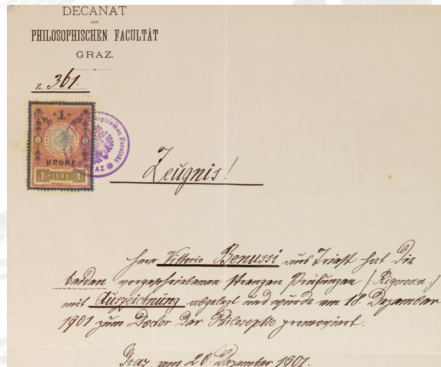 DECANAT
DER
PHILOSOPHISCHEN FACULTÄT
GRAZ.
Z. 361.
1
KRONE
Zeugnis!
Herr Vittorio Benussi aus Triest hat die
beiden vorgeschriebenen strengen Prüfungen (Rigorosen)
mit Auszeichnung abgelegt und wurde am 18. Dezember
1901 zum Doctor der Philosophie promoviert.
Graz am 20. Dezember 1901.